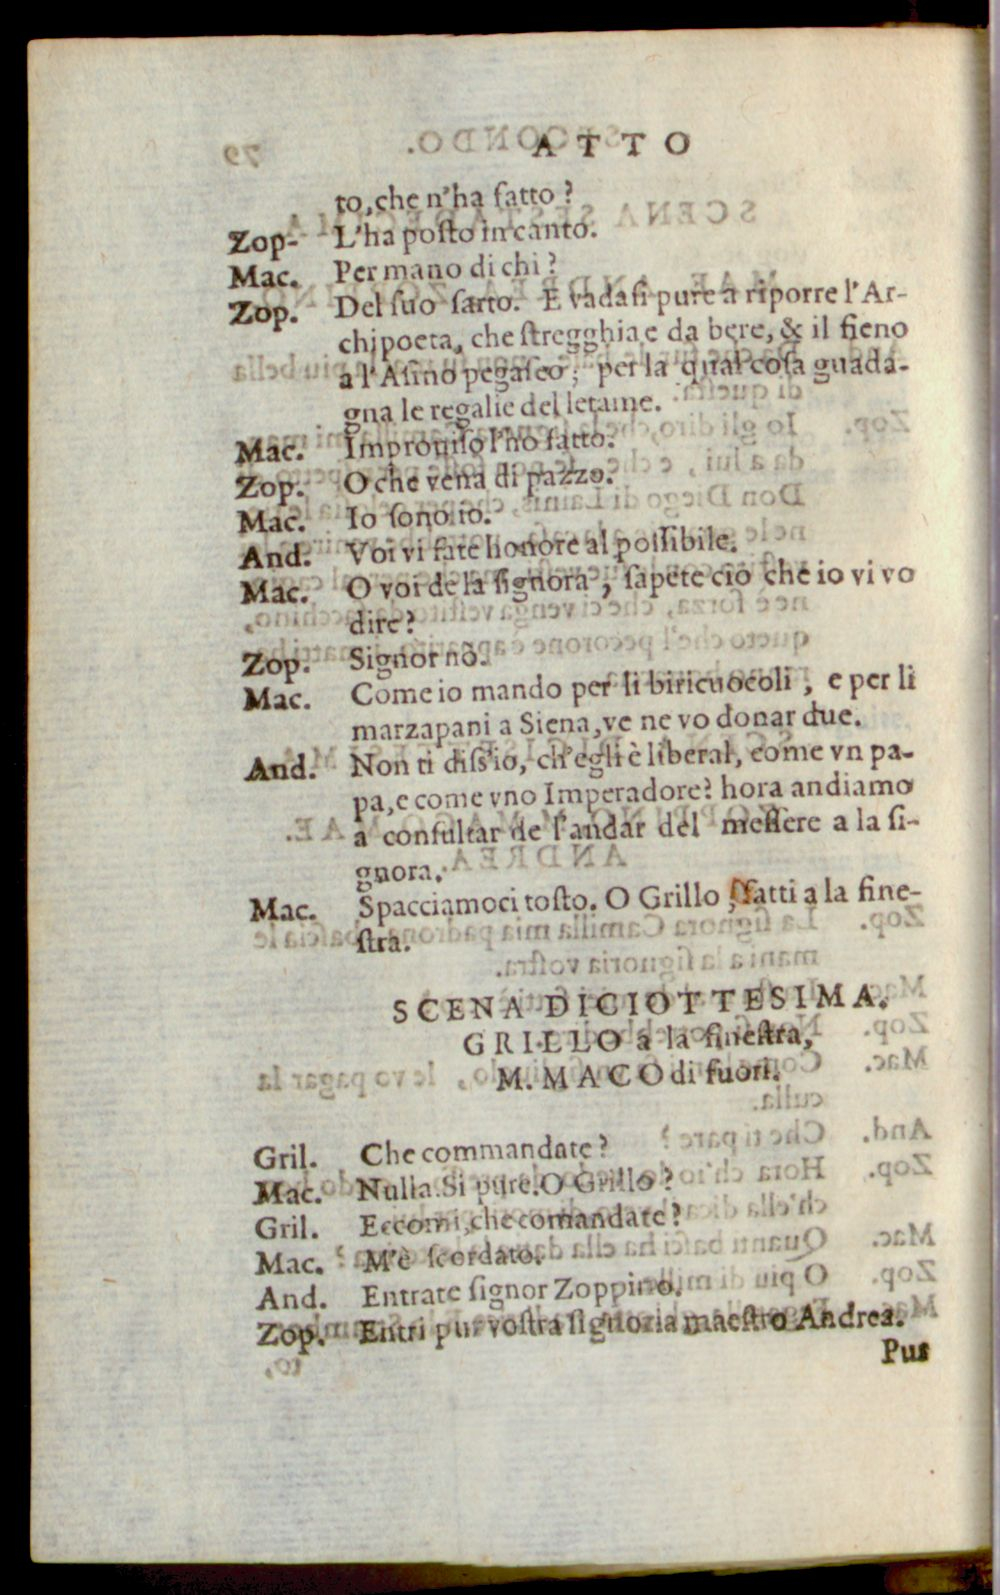 ATTO
to, che n'ha fatto?
Zop- L'ha poſto in canto.
Mac. Per mano di chi?
Zop. Del ſuo ſarto. E vadaſi pure a riporre l'Ar-
chipoeta, che ſtregghia e da bere, & il fieno
a l'Aſino pegaſeo; per la qual coſa guada-
gna le regalie del letame.
Mac. Improuiſo l'hò fatto.
Zop. O che vena di pazzo.
Mac. Io ſono io.
And. Voi vi fate honore al poſſibile.
Mac. O voi de la ſignora, ſapete ciò che io vi vo
dire?
Zop. Signor nò.
Mac. Come io mando per li biricuocoli, e per li
marzapani a Siena, ve ne vo donar due.
And. Non ti diſs'io, ch'egli è liberal, come vn pa-
pa, e come vno Imperadore? hora andiamo
a conſultar de l'andar del meſſere a la ſi-
gnora.
Mac. Spacciamoci toſto. O Grillo, fatti a la fine-
ſtra.
SCENA DICIOTTESIMA.
GRILLO a la fineſtra,
M. MACO di fuori.
Gril. Che commandate?
Mac. Nulla. Si pure. O Grillo?
Gril. Eccomi, che comandate?
Mac. M'è ſcordato.
And. Entrate ſignor Zoppino.
Zop. Entri pur voſtra ſignoria maeſtro Andrea.
Pur